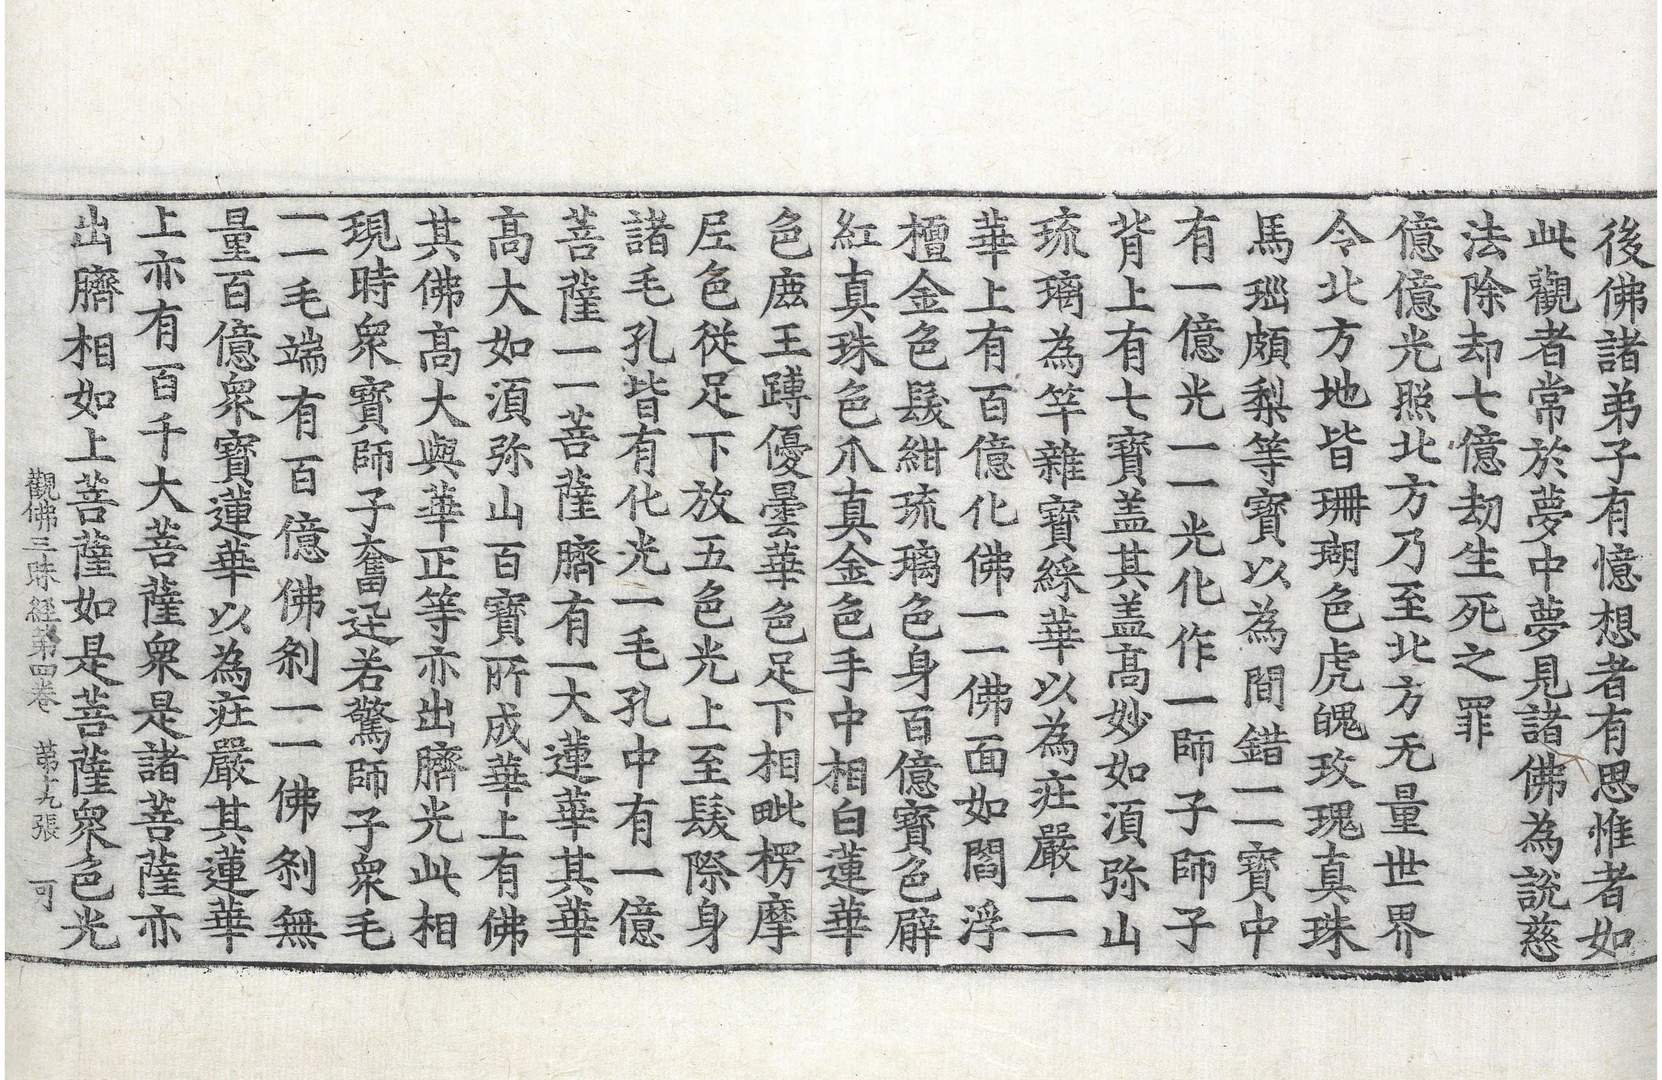 後佛諸弟子有憶想者有思惟者如
此觀者常於夢中夢見諸佛為說慈
法除却七億劫生死之罪
億億光照北方乃至北方无量世界
令北方地皆珊瑚色虎魄玫瑰真珠
馬瑙頗梨等寶以為間錯一一寶中
有一億光一一光化作一師子師子
背上有七寶盖其盖高妙如湏弥山
琉璃為竿雜寶綵華以為莊嚴一一
華上有百億化佛一一佛面如閻浮
檀金色髮紺琉璃色身百億寶色臂
紅真珠色爪真金色手中相白蓮華
色鹿王蹲優曇華色足下相毗楞摩
尼色從足下放五色光上至髮際身
諸毛孔皆有化光一毛孔中有一億
菩薩一一菩薩臍有一大蓮華其華
高大如湏弥山百寶所成華上有佛
其佛高大與華正等亦出臍光此相
現時衆寶師子奮迅若驚師子衆毛
一一毛端有百億佛剎一一佛剎無
量百億衆寶蓮華以為莊嚴其蓮華
上亦有百千大菩薩衆是諸菩薩亦
出臍相如上菩薩如是菩薩衆色光
觀佛三昧經第四卷 第十九張 可